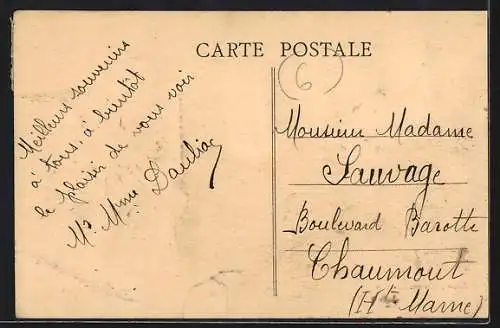 CARTE POSTALE
6
Meilleurs souvenirs
à tous, à bientôt
le plaisir de vous voir
Mr Mme Dauliac
Monsieur Madame
Sauvage
Boulevard Barotte
Chaumont
(Hte Marne)